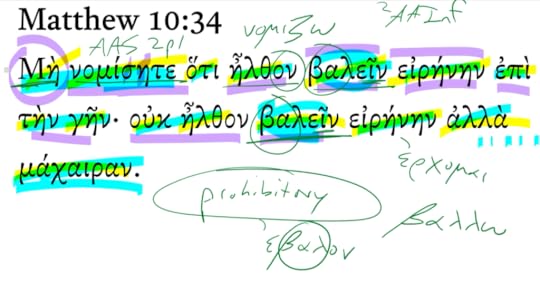 Matthew 10:34
νομιζω
²AAInf
AAS 2pl
Μὴ νομίσητε ὅτι ἦλθον βαλεῖν εἰρήνην ἐπὶ
τὴν γῆν· οὐκ ἦλθον βαλεῖν εἰρήνην ἀλλὰ
μάχαιραν.
ἐρχομαι
prohibitory
βαλλω
ἐβαλον